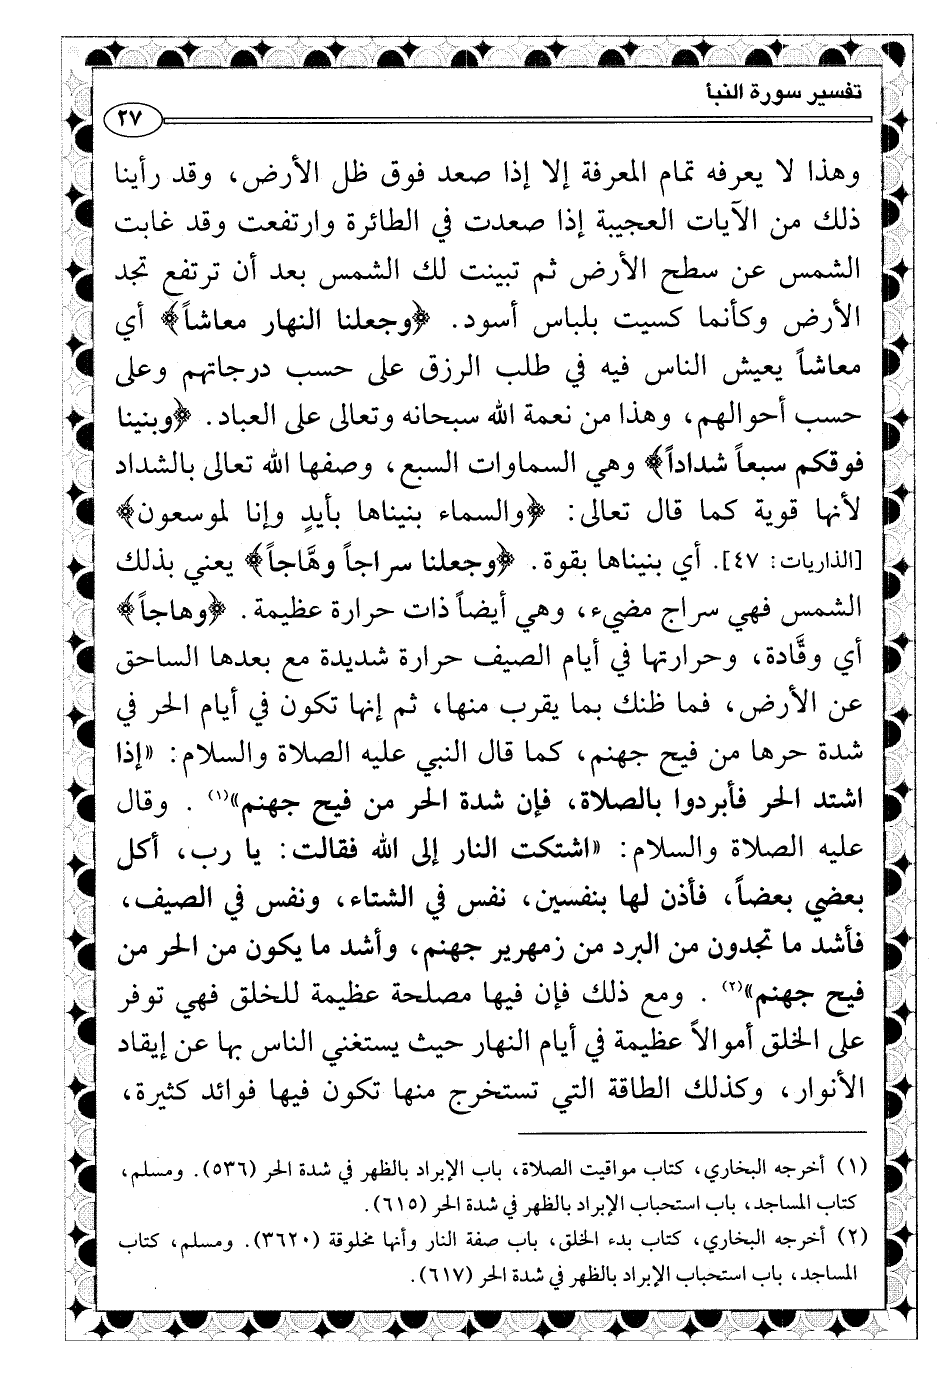 تفسير سورة النبأ
٢٧
وهذا لا يعرفه تمام المعرفة إلا إذا صعد فوق ظل الأرض، وقد رأينا
ذلك من الآيات العجيبة إذا صعدت في الطائرة وارتفعت وقد غابت
الشمس عن سطح الأرض ثم تبينت لك الشمس بعد أن ترتفع تجد
الأرض وكأنما كسيت بلباس أسود. ﴿وجعلنا النهار معاشاً﴾ أي
معاشاً يعيش الناس فيه في طلب الرزق على حسب درجاتهم وعلى
حسب أحوالهم، وهذا من نعمة الله سبحانه وتعالى على العباد. ﴿وبنينا
فوقكم سبعاً شداداً﴾ وهي السماوات السبع، وصفها الله تعالى بالشداد
لأنها قوية كما قال تعالى: ﴿والسماء بنيناها بأيدٍ وإنا لموسعون﴾
[الذاريات: ٤٧]. أي بنيناها بقوة. ﴿وجعلنا سراجاً وهَّاجاً﴾ يعني بذلك
الشمس فهي سراج مضيء، وهي أيضاً ذات حرارة عظيمة. ﴿وهاجاً﴾
أي وقَّادة، وحرارتها في أيام الصيف حرارة شديدة مع بعدها الساحق
عن الأرض، فما ظنك بما يقرب منها، ثم إنها تكون في أيام الحر في
شدة حرها من فيح جهنم، كما قال النبي عليه الصلاة والسلام: «إذا
اشتد الحر فأبردوا بالصلاة، فإن شدة الحر من فيح جهنم»(١). وقال
عليه الصلاة والسلام: «اشتكت النار إلى الله فقالت: يا رب، أكل
بعضي بعضاً، فأذن لها بنفسين، نفس في الشتاء، ونفس في الصيف،
فأشد ما تجدون من البرد من زمهرير جهنم، وأشد ما يكون من الحر من
فيح جهنم»(٢). ومع ذلك فإن فيها مصلحة عظيمة للخلق فهي توفر
على الخلق أموالاً عظيمة في أيام النهار حيث يستغني الناس بها عن إيقاد
الأنوار، وكذلك الطاقة التي تستخرج منها تكون فيها فوائد كثيرة،
(١) أخرجه البخاري، كتاب مواقيت الصلاة، باب الإبراد بالظهر في شدة الحر (٥٣٦). ومسلم،
كتاب المساجد، باب استحباب الإبراد بالظهر في شدة الحر (٦١٥).
(٢) أخرجه البخاري، كتاب بدء الخلق، باب صفة النار وأنها مخلوقة (٣٦٢٠). ومسلم، كتاب
المساجد، باب استحباب الإبراد بالظهر في شدة الحر (٦١٧).